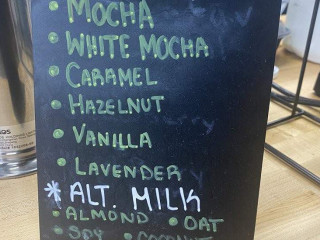 • MOCHA
• WHITE MOCHA
• CARAMEL
• HAZELNUT
• VANILLA
• LAVENDER
* ALT. MILK
• ALMOND • OAT
• SOY • COCONUT